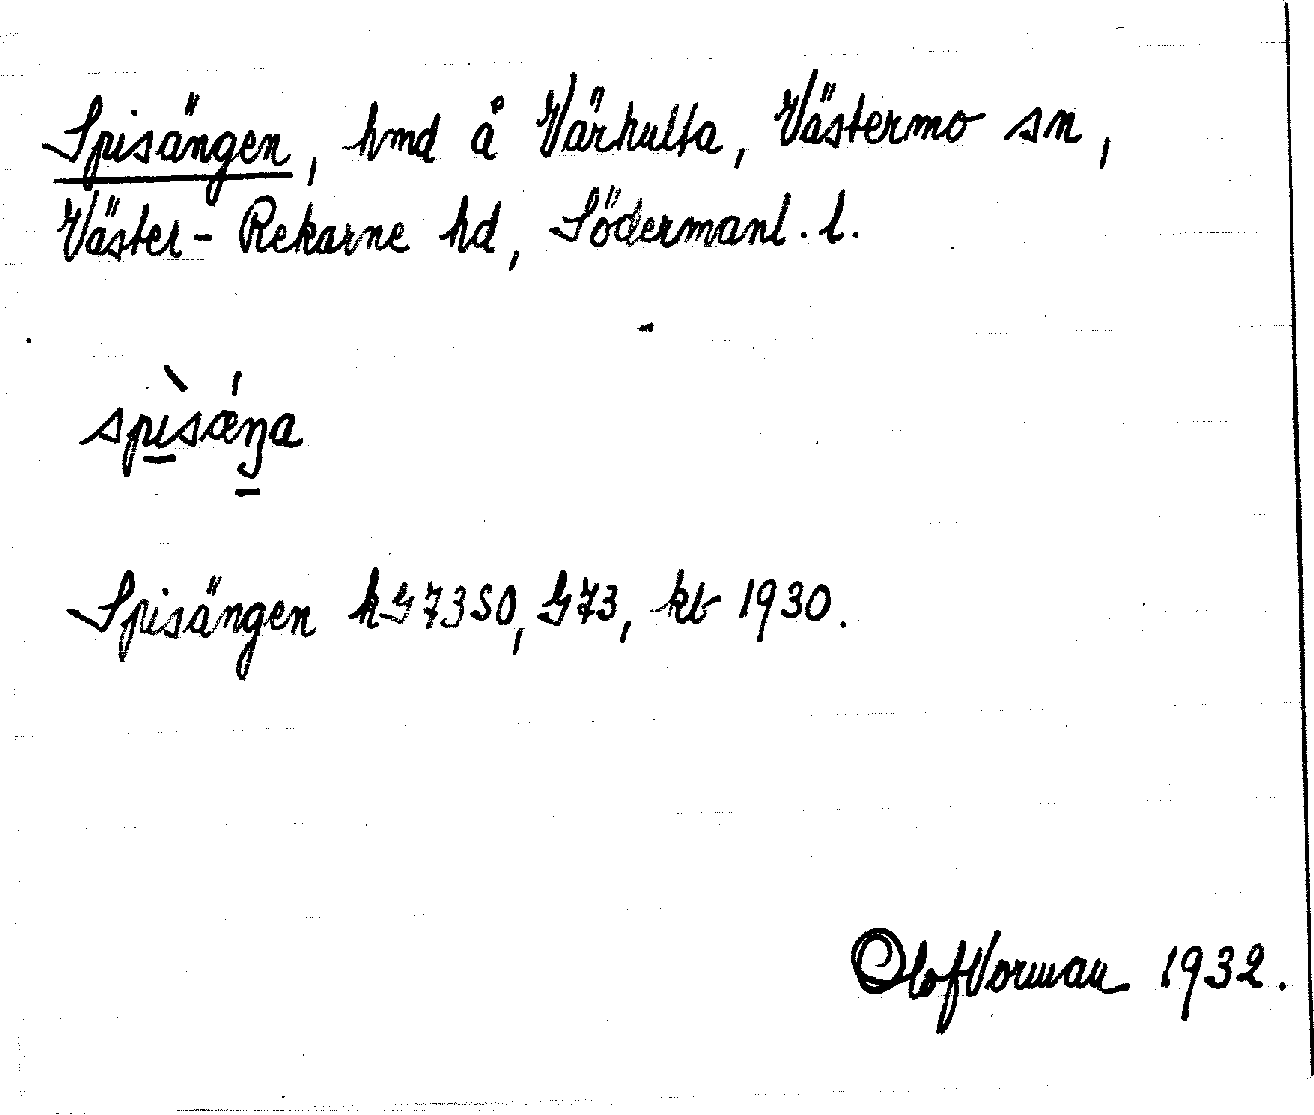 Spisängen, hmd å Värhulta, Västermo sn,
Väster-Rekarne hd, Södermanl. l.
spìsǽŋa
Spisängen hG7350, G73, kb 1930.
Olof Vorman 1932.